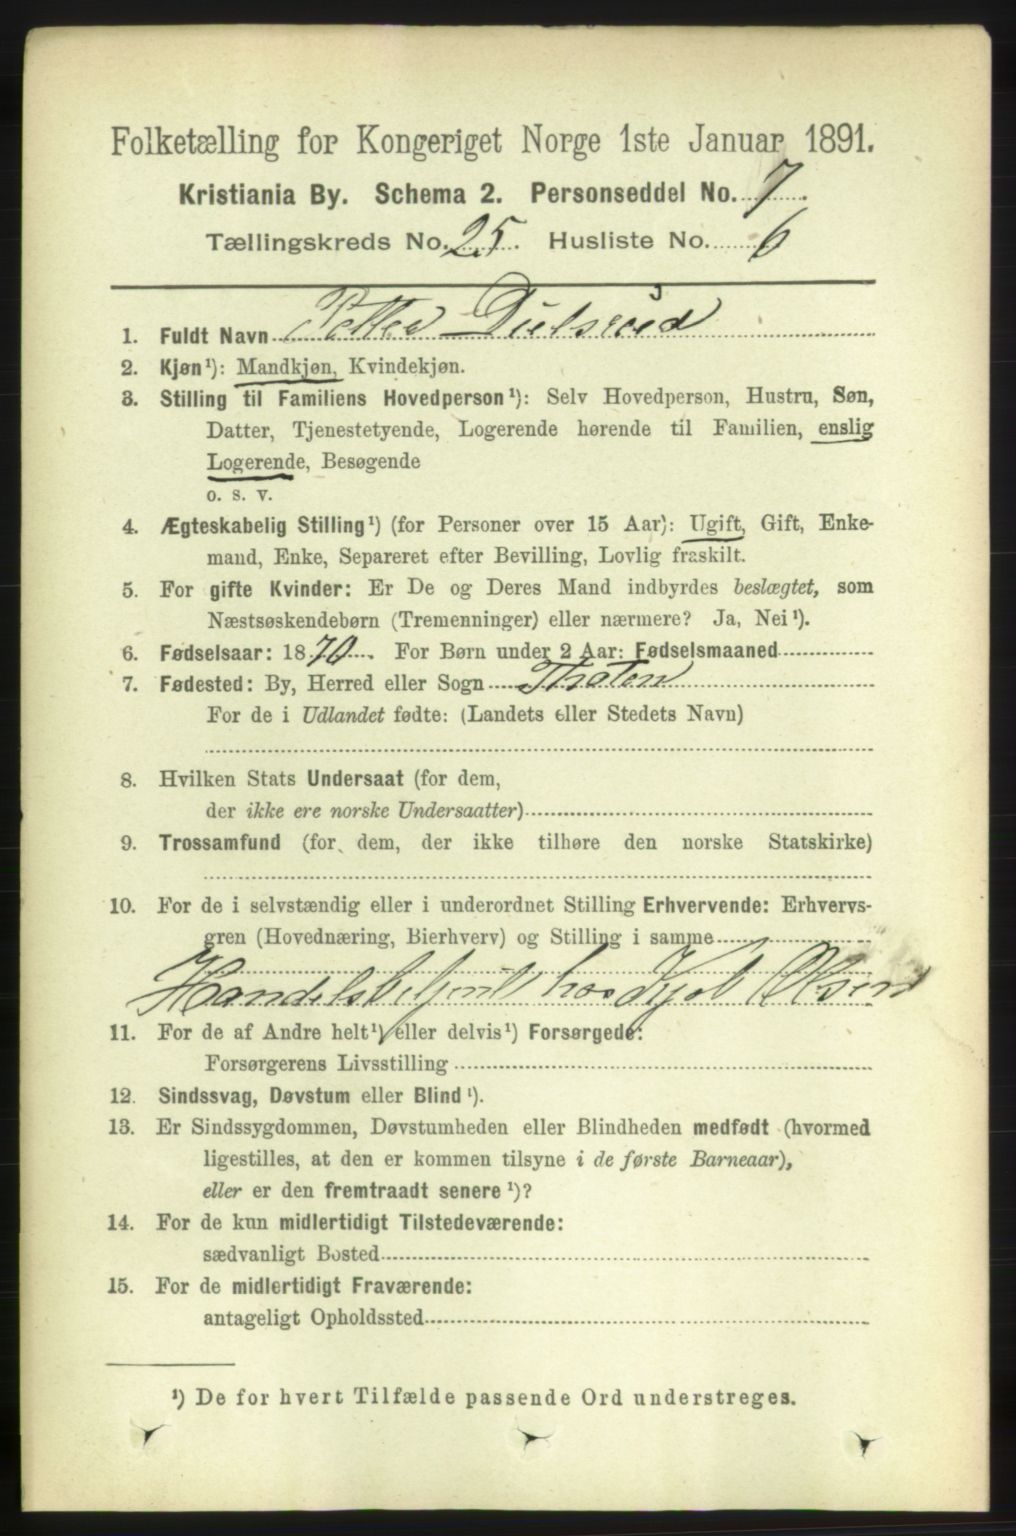 Folketælling for Kongeriget Norge 1ste Januar 1891.
Kristiania By. Schema 2. Personseddel No. 7.
Tællingskreds No. 25. Husliste No. 6
1. Fuldt Navn Petter
2. Kjøn¹): Mandkjøn, Kvindekjøn.
3. Stilling til Familiens Hovedperson¹): Selv Hovedperson, Hustru, Søn,
Datter, Tjenestetyende, Logerende hørende til Familien, enslig
Logerende, Besøgende
o. s. v.
4. Ægteskabelig Stilling¹) (for Personer over 15 Aar): Ugift, Gift, Enke-
mand, Enke, Separeret efter Bevilling, Lovlig fraskilt.
5. For gifte Kvinder: Er De og Deres Mand indbyrdes beslægtet, som
Næstsøskendebørn (Tremenninger) eller nærmere? Ja, Nei¹).
6. Fødselsaar: 1870. For Børn under 2 Aar: Fødselsmaaned
7. Fødested: By, Herred eller Sogn Thoten
For de i Udlandet fødte: (Landets eller Stedets Navn)
8. Hvilken Stats Undersaat (for dem,
der ikke ere norske Undersaatter)
9. Trossamfund (for dem, der ikke tilhøre den norske Statskirke)
10. For de i selvstændig eller i underordnet Stilling Erhvervende: Erhvervs-
gren (Hovednæring, Bierhverv) og Stilling i samme
Handelsbetjent hos Olsen
11. For de af Andre helt¹) eller delvis¹) Forsørgede:
Forsørgerens Livsstilling
12. Sindssvag, Døvstum eller Blind¹).
13. Er Sindssygdommen, Døvstumheden eller Blindheden medfødt (hvormed
ligestilles, at den er kommen tilsyne i de første Barneaar),
eller er den fremtraadt senere¹)?
14. For de kun midlertidigt Tilstedeværende:
sædvanligt Bosted
15. For de midlertidigt Fraværende:
antageligt Opholdssted
¹) De for hvert Tilfælde passende Ord understreges.